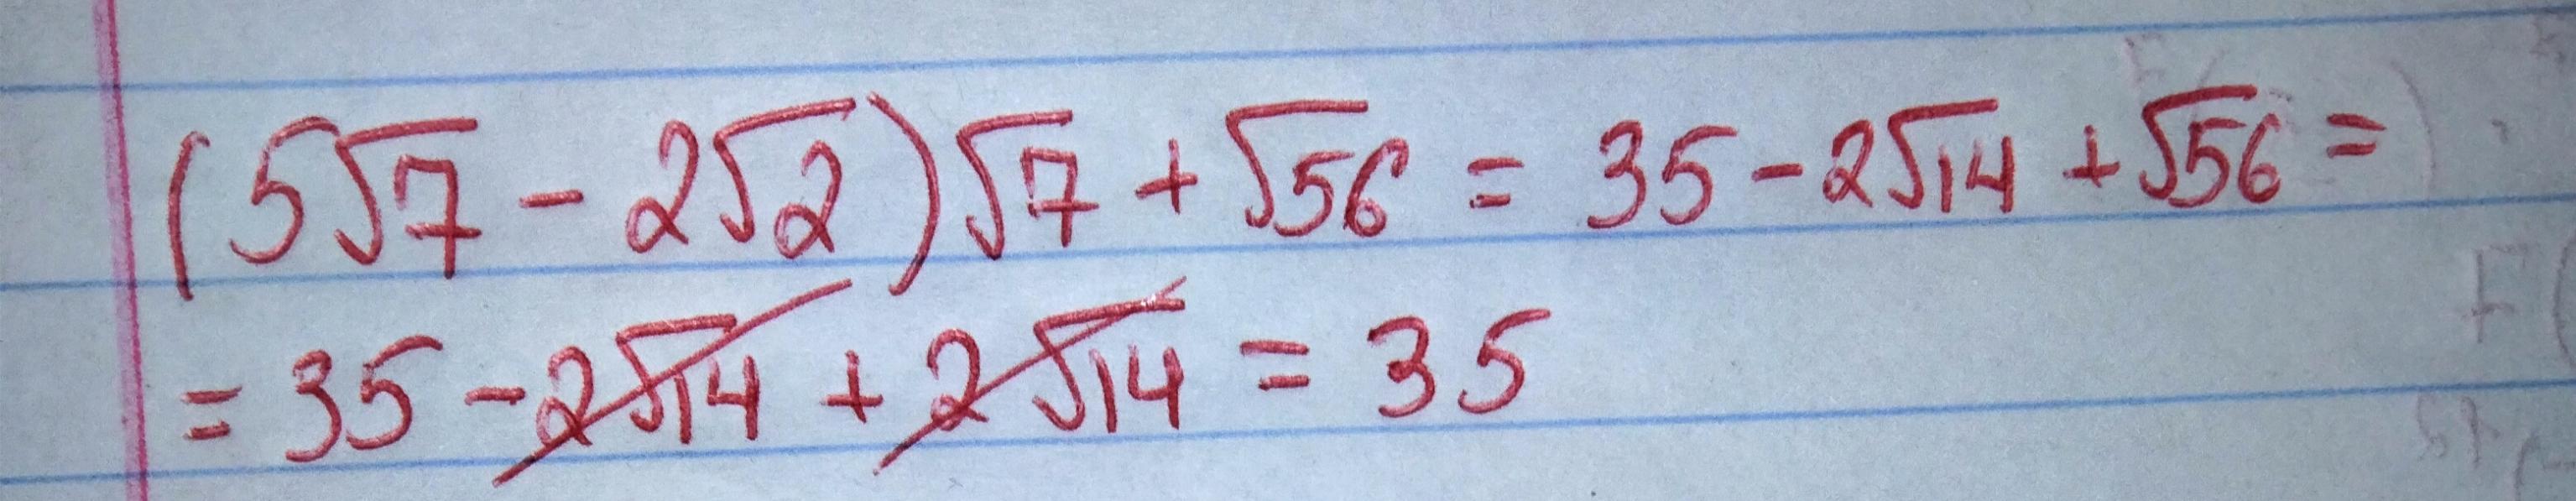 (5√7 - 2√2)√7 + √56 = 35 - 2√14 + √56 =
= 35 - 2√14 + 2√14 = 35